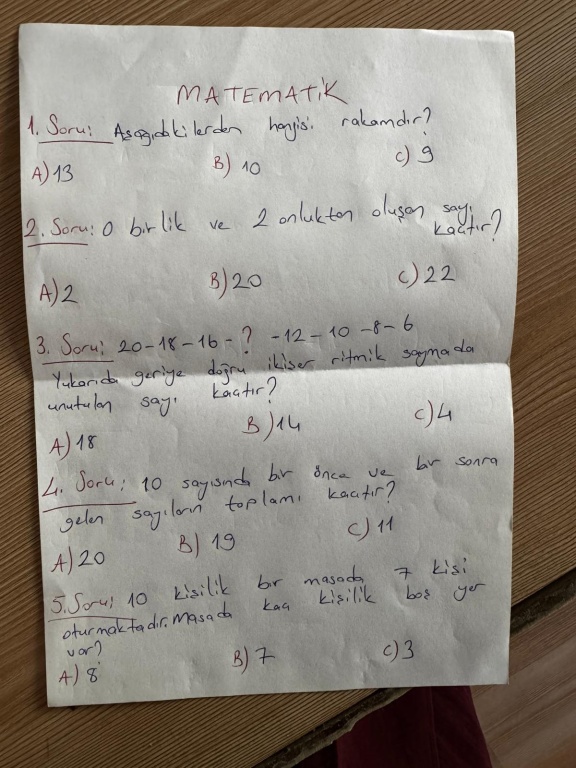 MATEMATİK
1. Soru: Aşağıdakilerden hangisi rakamdır?
A) 13 B) 10 C) 9
2. Soru: 0 birlik ve 2 onluktan oluşan sayı
kaçtır?
A) 2 B) 20 C) 22
3. Soru: 20-18-16-? -12-10-8-6
Yukarıda geriye doğru ikişer ritmik saymada
unutulan sayı kaçtır?
A) 18 B) 14 C) 4
4. Soru: 10 sayısında bir önce ve bir sonra
gelen sayıların toplamı kaçtır?
A) 20 B) 19 C) 11
5. Soru: 10 kişilik bir masada 7 kişi
oturmaktadır. Masada kaç kişilik boş yer
var?
A) 8 B) 7 C) 3